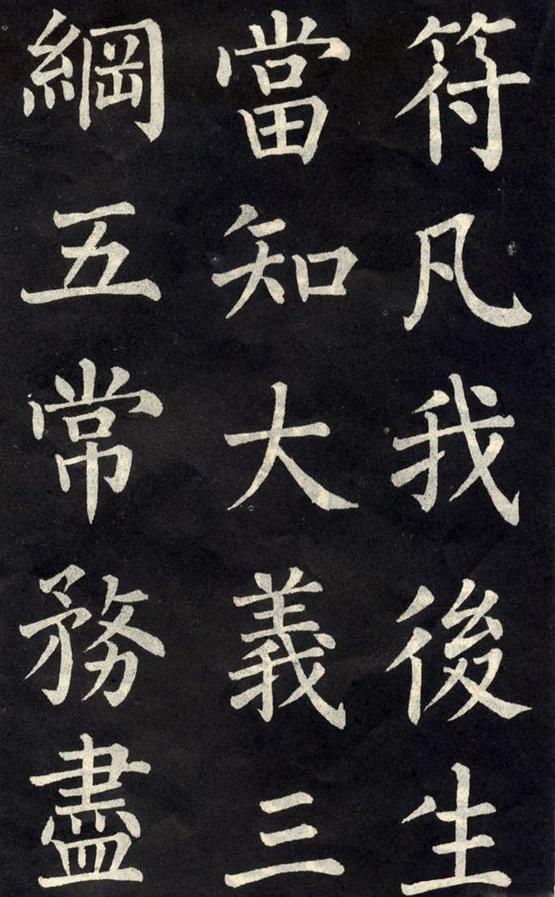 符凡我後生
當知大義三
綱五常務盡